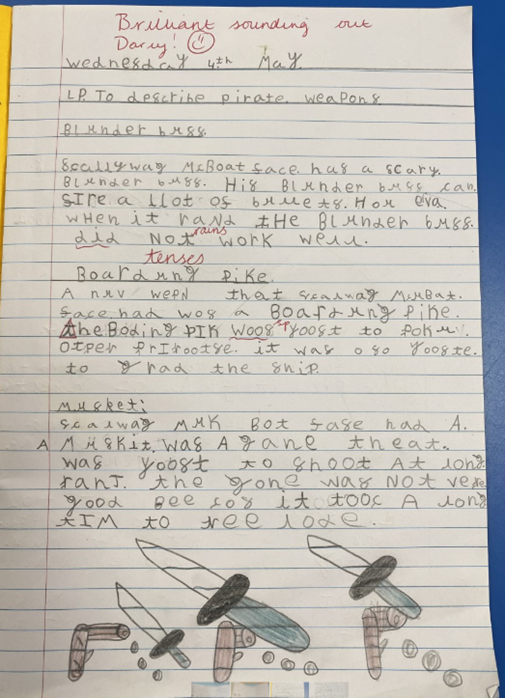 Brilliant sounding out
Darcy!
Wednesday 4th May
LP. To describe pirate weapons
Blunder buss.
Scallywag McBoat face. has a scary.
Blunder buss. His Blunder buss can.
fire a llot of bullets. How eva.
wHen it rand tHe Blunder buss.
rains
did Not work well.
tenses
Boardung Pike.
A nuv wepn that scalwag McBat.
face had wos a Boardung Pike.
the Boding PIK woos yoost to Poke
Otper Prirootse. it was olso yooste.
to grad the ship.
Musket:
scalwag MuK Bot fase had A.
A Muskit. was A gane theat.
was yoost to shoot At long
ranT. the gone was NOt vere
good bee cos it tooc A long
tIM to ree lode.